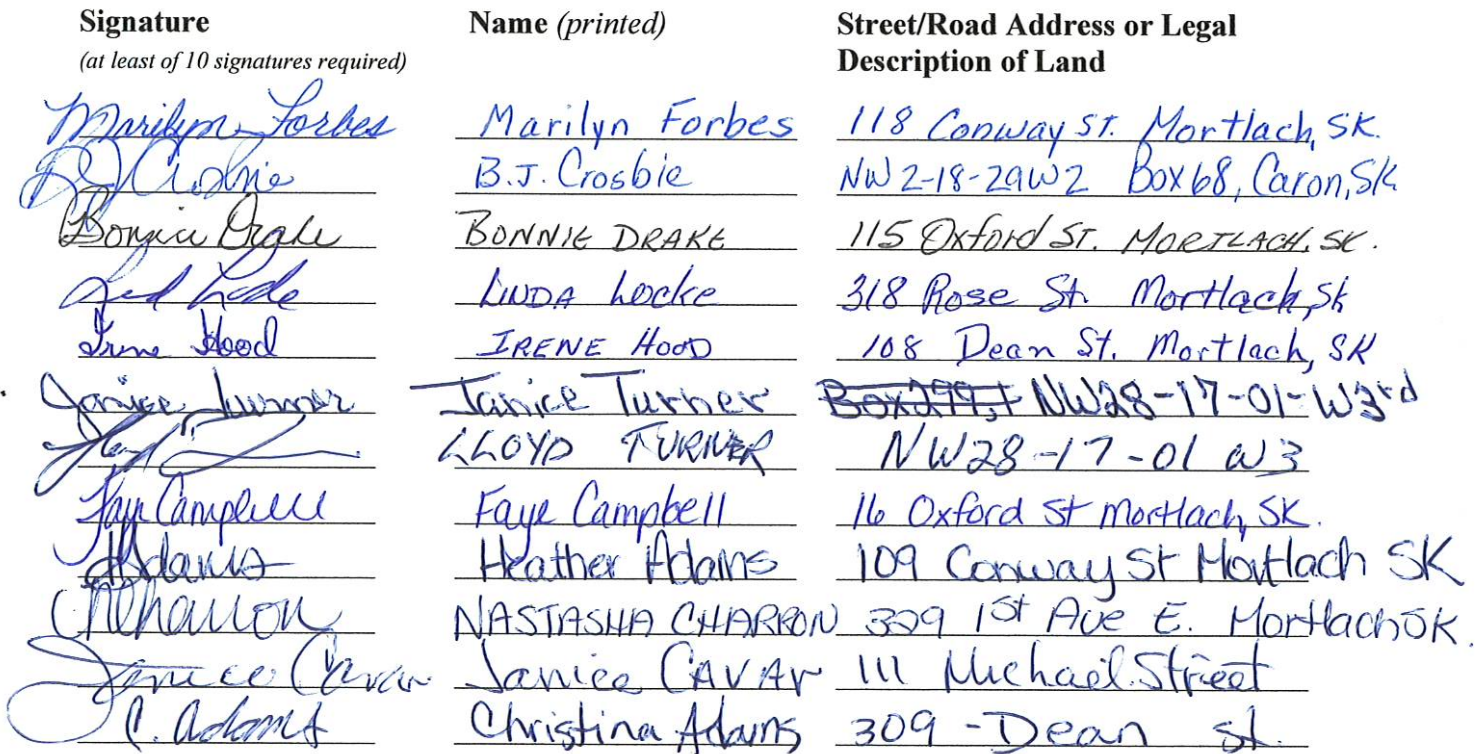 Signature Name (printed) Street/Road Address or Legal
(at least of 10 signatures required) Description of Land
Marilyn Forbes Marilyn Forbes 118 Conway St. Mortlach, SK.
BJ Crosbie B.J. Crosbie NW 2-18-29W2 Box 68, Caron, Sk
Bonnie Drake BONNIE DRAKE 115 Oxford St. MORTLACH, SK.
LINDA Locke 318 Rose St. Mortlach, Sk
Irene Hood IRENE HOOD 108 Dean St. Mortlach, SK
Janice Turner Janice Turner Box 299, NW28-17-01-W3rd
LLOYD TURNER NW28-17-01 W3
Faye Campbell Faye Campbell 16 Oxford St Mortlach, SK.
HAdams Heather Adams 109 Conway St Mortlach SK
NCharron NASTASHA CHARRON 329 1st Ave E. Mortlach SK.
Janice Cavar Janice CAVAR 111 Michael Street
C. Adams Christina Adams 309 - Dean st.